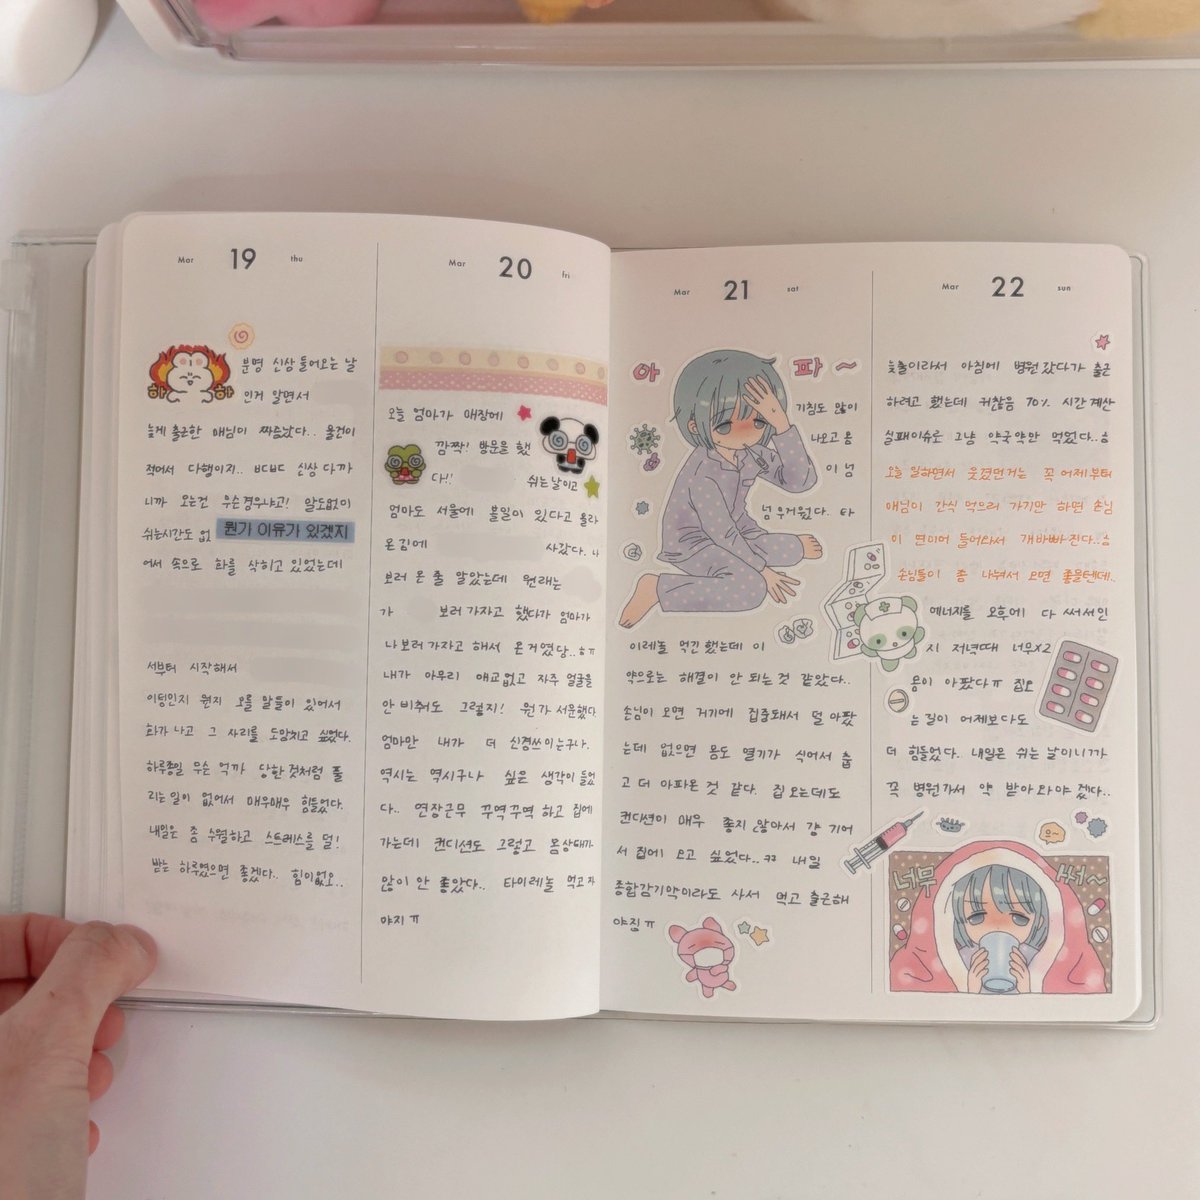 Mar 19 thu
하 하
분명 신상 들어오는 날
인거 알면서
늦게 출근한 매님이 짜증났다.. 물건이
적어서 다행이지.. ㅂㄷㅂㄷ 신상 다 까
니까 오는건 무슨경우냐고! 말도없이
쉬는시간도 없 뭔가 이유가 있겠지
어서 속으로 화를 삭히고 있었는데
서부터 시작해서
이럴 뭔지 모를 말들이 있어서
화가 나고 그 자리를 도망치고 싶었다.
하루종일 무슨 억까 당한것처럼 풀
리는 일이 없어서 매우매우 힘들었다.
내일은 좀 수월하고 스트레스를 덜!
받는 하루였으면 좋겠다.. 힘이없오..
Mar 20 fri
오늘 엄마가 매장에
깜짝! 방문을 했
다!! 쉬는날이고
엄마도 서울에 볼일이 있다고 올라
온김에 사갔다. 나
보러 온 줄 알았는데 원래는
가 보러 가자고 했다가 엄마가
나 보러 가자고 해서 온거였당..ㅎㅠ
내가 아무리 애교없고 자주 얼굴을
안 비춰도 그렇지! 뭔가 서운했다
엄마만 내가 더 신경쓰이는구나.
역시는 역시구나 싶은 생각이 들었
다.. 연장근무 꾸역꾸역 하고 집에
가는데 컨디션도 그렇고 몸상태가
많이 안 좋았다.. 타이레놀 먹고자
야지ㅠ
Mar 21 sat
아 파 ~
기침도 많이
나오고 몸
이 넘
넘 무거웠다. 타
이레놀 먹긴 했는데 이
약으로는 해결이 안 되는 것 같았다..
손님이 오면 거기에 집중돼서 덜 아팠
는데 없으면 몸도 열기가 식어서 춥
고 더 아파온 것 같다. 집 오는데도
컨디션이 매우 좋지 않아서 걍 기어
서 집에 오고 싶었다..ㅋㅋ 내일
종합감기약이라도 사서 먹고 출근해
야짐ㅠ
Mar 22 sun
늦출이라서 아침에 병원 갔다가 출근
하려고 했는데 귀찮음 70% 시간계산
실패이슈로 그냥 약국약만 먹었다..ㅎ
오늘 일하면서 웃겼던거는 꼭 어제부터
매님이 간식 먹으러 가기만 하면 손님
이 연이어 들어와서 개바빠진다..ㅎ
손님들이 좀 나눠서 오면 좋을텐데..
에너지를 오후에 다 써서인
지 저녁때 너무x2
몸이 아팠다ㅠ 집오
는길이 어제보다도
더 힘들었다. 내일은 쉬는 날이니까
꼭 병원가서 약 받아와야겠다..
너무 써~
으~